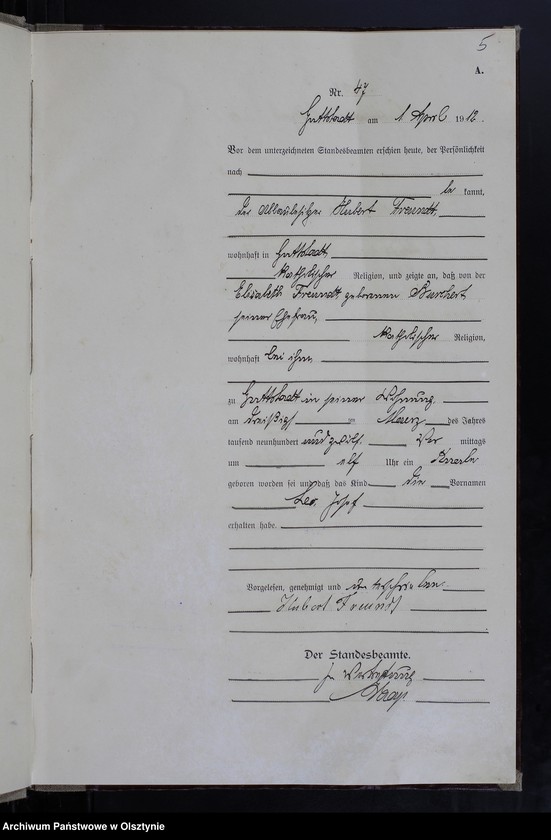 5
A.
Nr. 47
Guttstadt am 1 April 1912.
Vor dem unterzeichneten Standesbeamten erschien heute, der Persönlichkeit
nach
be kannt,
der Hubert Freundt,
wohnhaft in Guttstadt,
katholischer Religion, und zeigte an, daß von der
Elisabeth Freundt, geborenen
seiner Ehefrau,
katholischer Religion,
wohnhaft bei ihm,
zu Guttstadt in seiner Wohnung,
am dreißigst en Maerz des Jahres
tausend neunhundert und zwölf Vor mittags
um elf Uhr ein Knabe
geboren worden sei und daß das Kind die Vornamen
Leo Josef
erhalten habe.
Vorgelesen, genehmigt und unterschrieben
Hubert Freundt
Der Standesbeamte.
In Vertretung
Archiwum Państwowe w Olsztynie